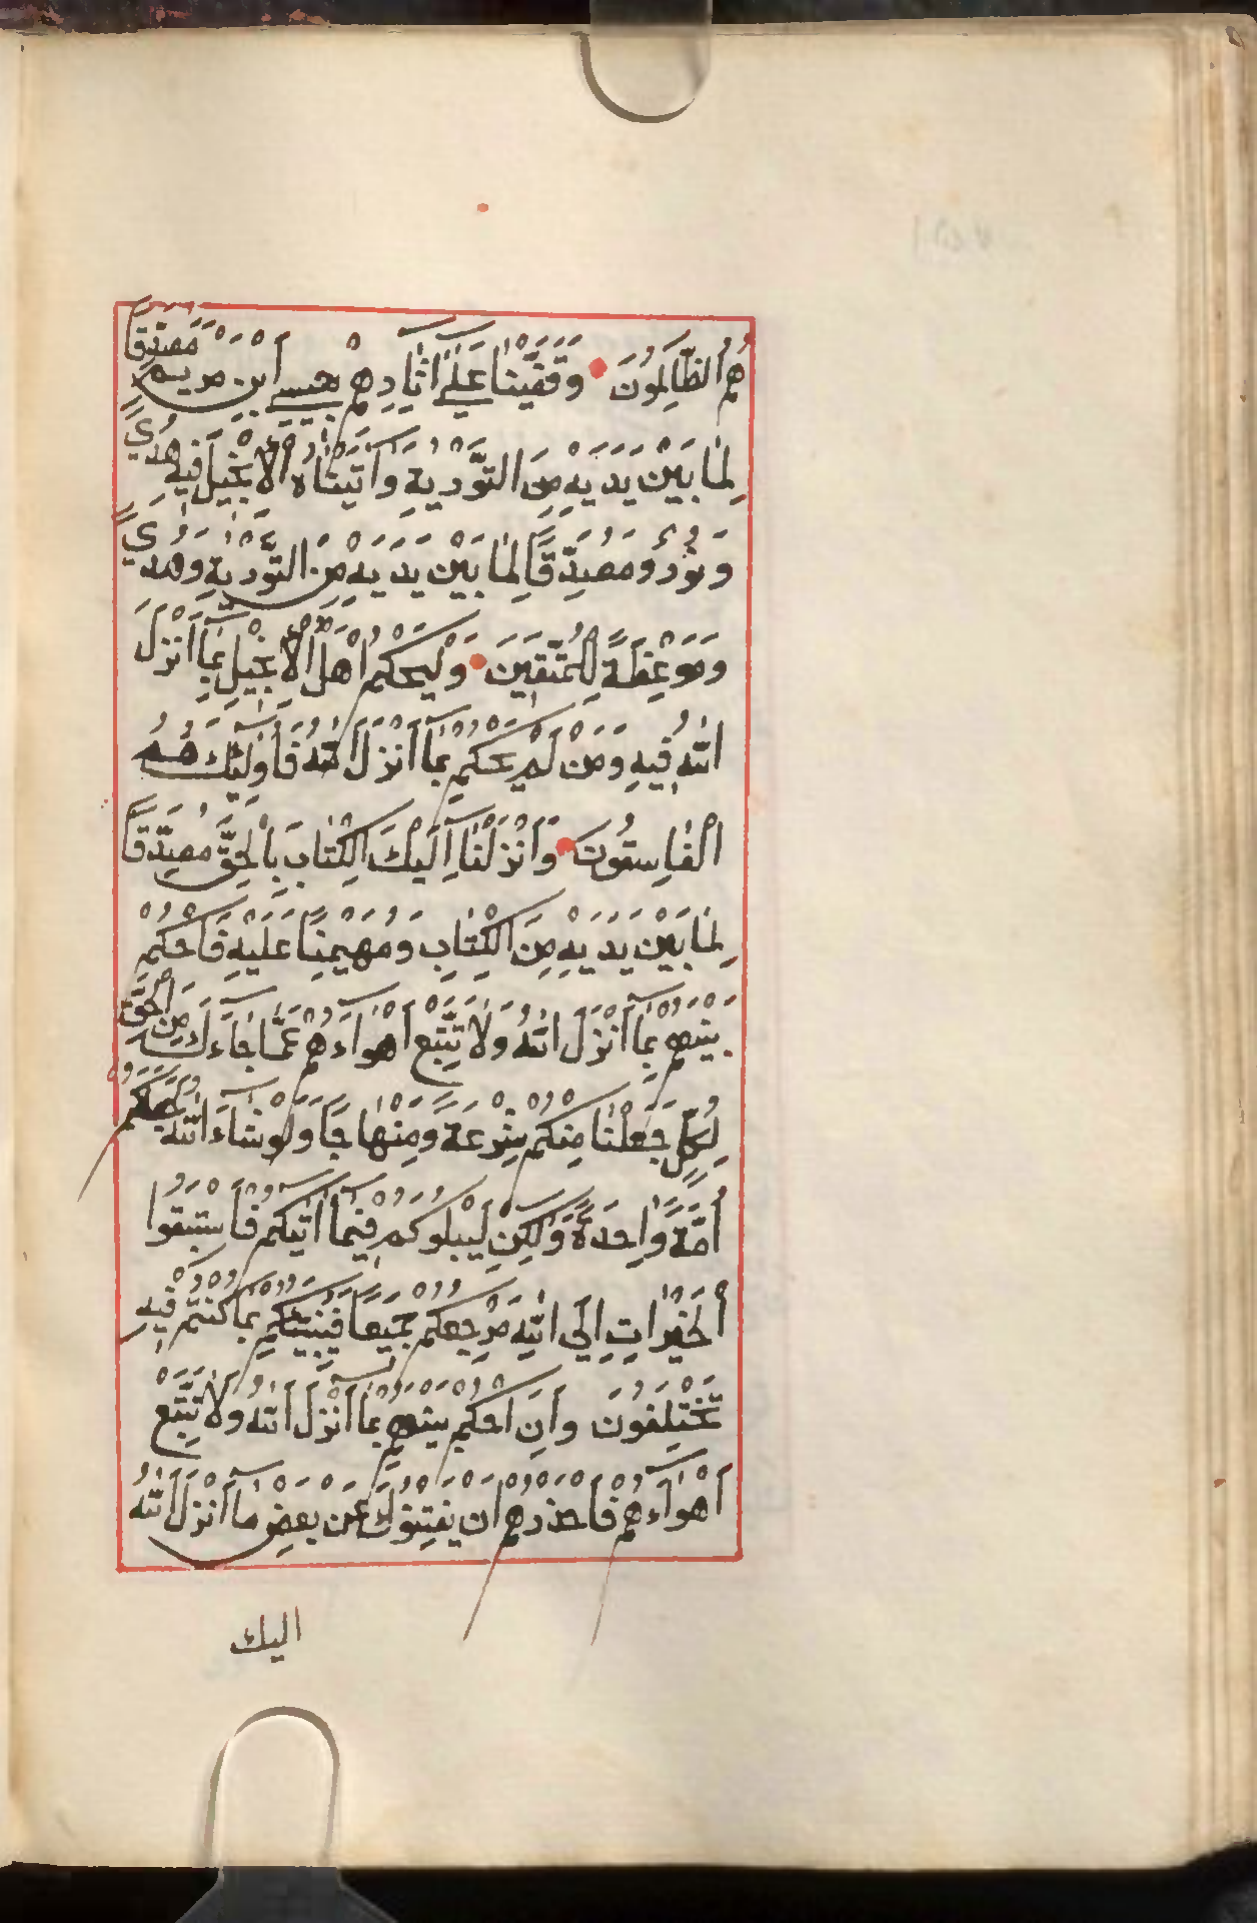 هُمُ الظَّالِمُونَ وَقَفَّيْنَا عَلَىٰ آثَارِهِمْ بِعِيسَى ابْنِ مَرْيَمَ مُصَدِّقًا
لِمَا بَيْنَ يَدَيْهِ مِنَ التَّوْرٰيةِ وَآتَيْنَاهُ الْإِنْجِيلَ فِيهِ هُدًى
وَنُورٌ وَمُصَدِّقًا لِمَا بَيْنَ يَدَيْهِ مِنَ التَّوْرٰيةِ وَهُدًى
وَمَوْعِظَةً لِلْمُتَّقِينَ وَلْيَحْكُمْ أَهْلُ الْإِنْجِيلِ بِمَا أَنْزَلَ
اللّٰهُ فِيهِ وَمَنْ لَمْ يَحْكُمْ بِمَا أَنْزَلَ اللّٰهُ فَأُولٰئِكَ هُمُ
الْفَاسِقُونَ وَأَنْزَلْنَا إِلَيْكَ الْكِتَابَ بِالْحَقِّ مُصَدِّقًا
لِمَا بَيْنَ يَدَيْهِ مِنَ الْكِتَابِ وَمُهَيْمِنًا عَلَيْهِ فَاحْكُمْ
بَيْنَهُمْ بِمَا أَنْزَلَ اللّٰهُ وَلَا تَتَّبِعْ أَهْوَاءَهُمْ عَمَّا جَاءَكَ مِنَ الْحَقِّ
لِكُلٍّ جَعَلْنَا مِنْكُمْ شِرْعَةً وَمِنْهَاجًا وَلَوْ شَاءَ اللّٰهُ لَجَعَلَكُمْ
أُمَّةً وَاحِدَةً وَلٰكِنْ لِيَبْلُوَكُمْ فِيمَا آتٰيكُمْ فَاسْتَبِقُوا
الْخَيْرَاتِ إِلَى اللّٰهِ مَرْجِعُكُمْ جَمِيعًا فَيُنَبِّئُكُمْ بِمَا كُنْتُمْ فِيهِ
تَخْتَلِفُونَ وَأَنِ احْكُمْ بَيْنَهُمْ بِمَا أَنْزَلَ اللّٰهُ وَلَا تَتَّبِعْ
أَهْوَاءَهُمْ فَاحْذَرْهُمْ أَنْ يَفْتِنُوكَ عَنْ بَعْضِ مَا أَنْزَلَ اللّٰهُ
اليك